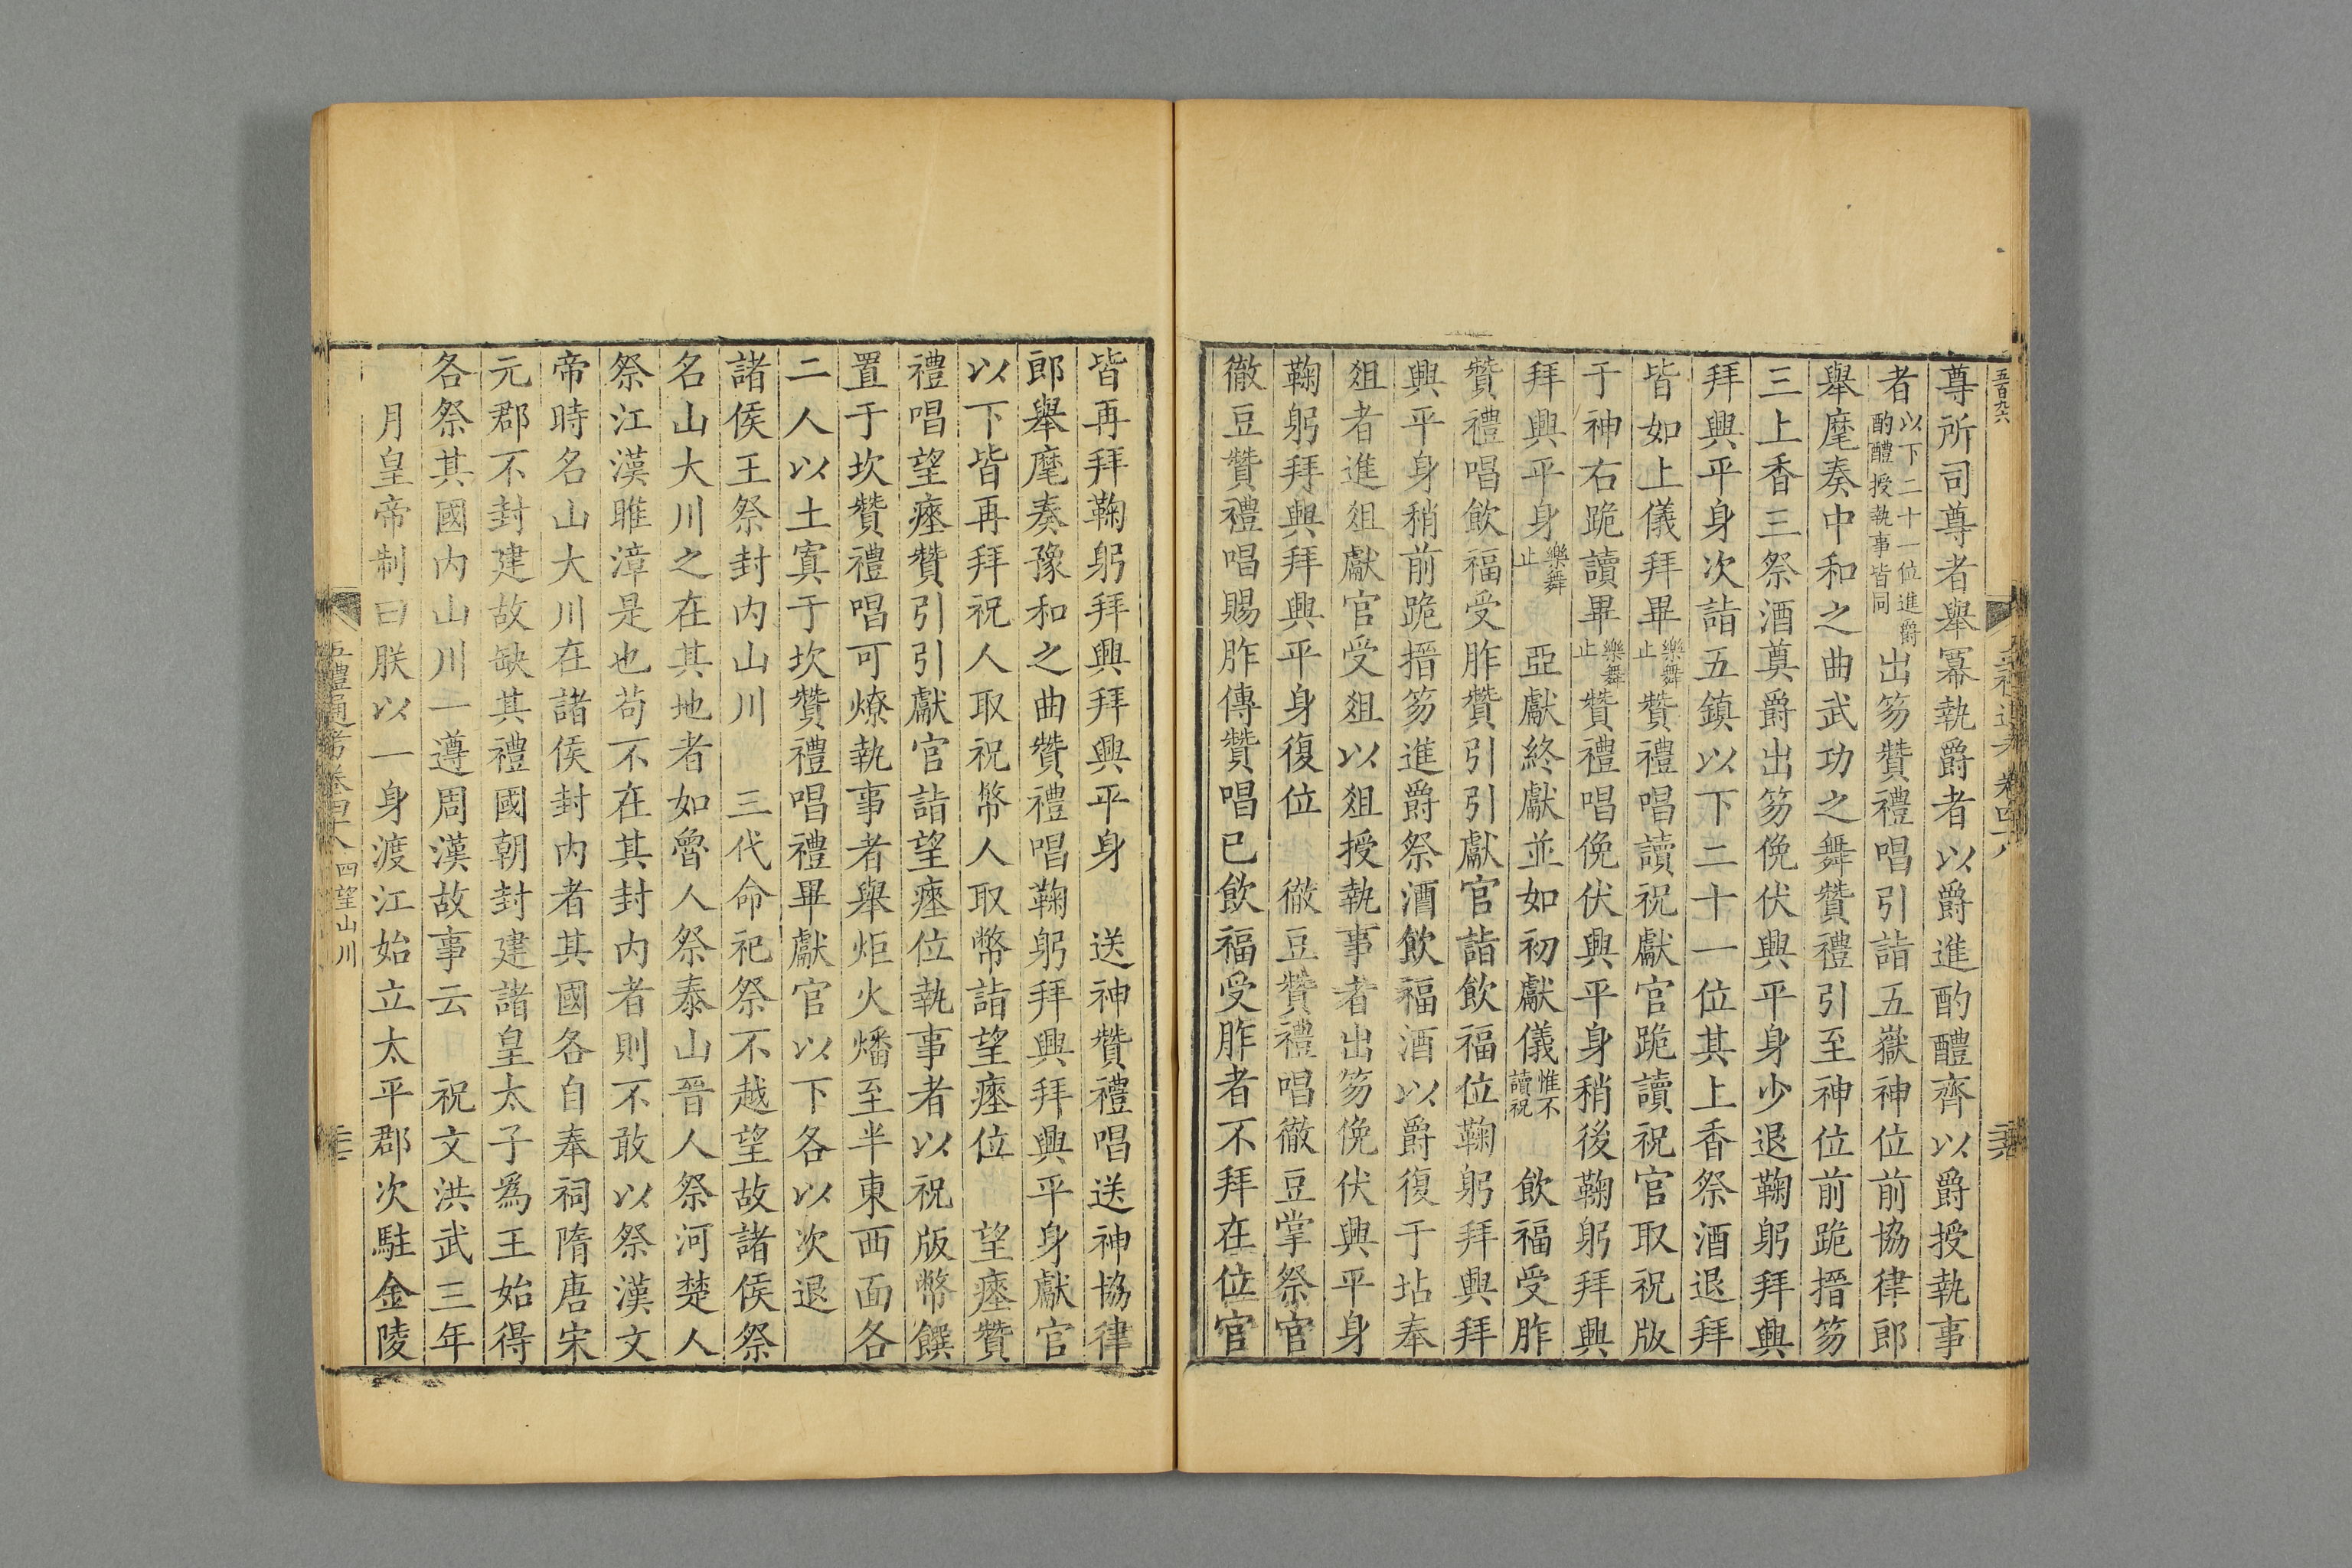 五百九六
尊所司尊者舉冪執爵者以爵進酌醴齊以爵授執事
者以下二十一位進爵酌醴授執事皆同出笏贊禮唱引詣五嶽神位前協律郎
舉麾奏中和之曲武功之舞贊禮引至神位前跪搢笏
三上香三祭酒奠爵出笏俛伏興平身少退鞠躬拜興
拜興平身次詣五鎮以下二十一位其上香祭酒退拜
皆如上儀拜畢樂舞止贊禮唱讀祝獻官跪讀祝官取祝版
于神右跪讀畢樂舞止贊禮唱俛伏興平身稍後鞠躬拜興
拜興平身樂舞止 亞獻終獻並如初獻儀惟不讀祝 飲福受胙
贊禮唱飲福受胙贊引引獻官詣飲福位鞠躬拜興拜
興平身稍前跪搢笏進爵祭酒飲福酒以爵復于坫奉
俎者進俎獻官受俎以俎授執事者出笏俛伏興平身
鞠躬拜興拜興平身復位 徹豆贊禮唱徹豆掌祭官
徹豆贊禮唱賜胙傳贊唱已飲福受胙者不拜在位官
皆再拜鞠躬拜興拜興平身 送神贊禮唱送神協律
郎舉麾奏豫和之曲贊禮唱鞠躬拜興拜興平身獻官
以下皆再拜祝人取祝幣人取幣詣望瘞位 望瘞贊
禮唱望瘞贊引引獻官詣望瘞位執事者以祝版幣饌
置于坎贊禮唱可燎執事者舉炬火燔至半東西面各
二人以土寘于坎贊禮唱禮畢獻官以下各以次退
諸侯王祭封内山川 三代命祀祭不越望故諸侯祭
名山大川之在其地者如魯人祭泰山晉人祭河楚人
祭江漢睢漳是也苟不在其封内者則不敢以祭漢文
帝時名山大川在諸侯封内者其國各自奉祠隋唐宋
元郡不封建故缺其禮國朝封建諸皇太子爲王始得
各祭其國内山川一遵周漢故事云 祝文洪武三年
月皇帝制曰朕以一身渡江始立太平郡次駐金陵
五禮通考卷四十八 四望山川